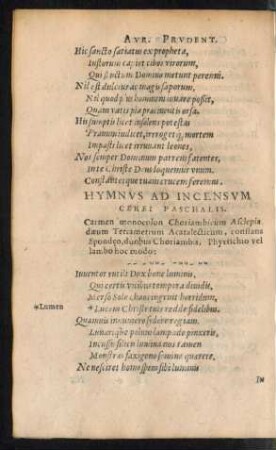 AVR. PRVDENT.
Hic sancto satiatus ex propheta,
Iustorum capiet cibos virorum,
Qui fructum Domino metunt perenni.
Nil est dulcius ac magis saporum,
Nil quod plus hominem iuuare possit,
Quam vatis pia præcinentis orsa.
His sumptis licet insolens potestas
Prauum iudicet, irrogetq; mortem
Impasti licet irruant leones,
Nos semper Dominum patrem fatentes,
In te Christe Deus loquemur vnum.
Constanterque tuam crucem feremus.
HYMNVS AD INCENSVM
CEREI PASCHALIS.
Carmen monocolon Choriambicum Asclepia
dæum Tetrametrum Acatalecticum, constans
Spondeo, duobus Choriambis, Phyrrichio vel
Iambo hoc modo:
Inuentor rutili Dux bone luminis,
Qui certis vicibus tempora diuidis,
Merso Sole chaos ingruit horridum,
*Lumen
*Lucem Christe tuis redde fidelibus.
Quamuis innumero sidere regiam.
Lunariq; polum lampade pinxeris,
Incussu silicis lumina nos tamen
Monstras saxigeno semine quærere,
Ne nesciret homo spem sibi luminis
In